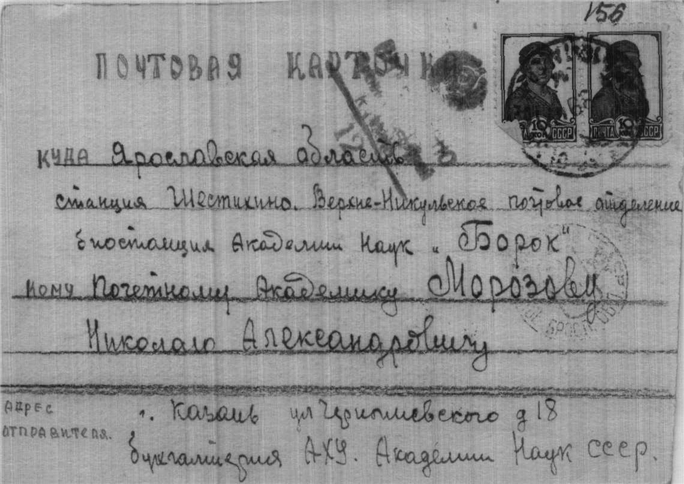 156
ПОЧТОВАЯ КАРТОЧКА
10 КОП СССР ПОЧТА СССР
КУДА Ярославская область
станция Шестихино. Верхне-Никульское почтовое отделение
биостанция Академии Наук „Борок“
кому Почетному Академику Морозову
Николаю Александровичу
АДРЕС
ОТПРАВИТЕЛЯ.
г. Казань ул Чернышевского д 18
бухгалтерия АХУ. Академии Наук СССР.